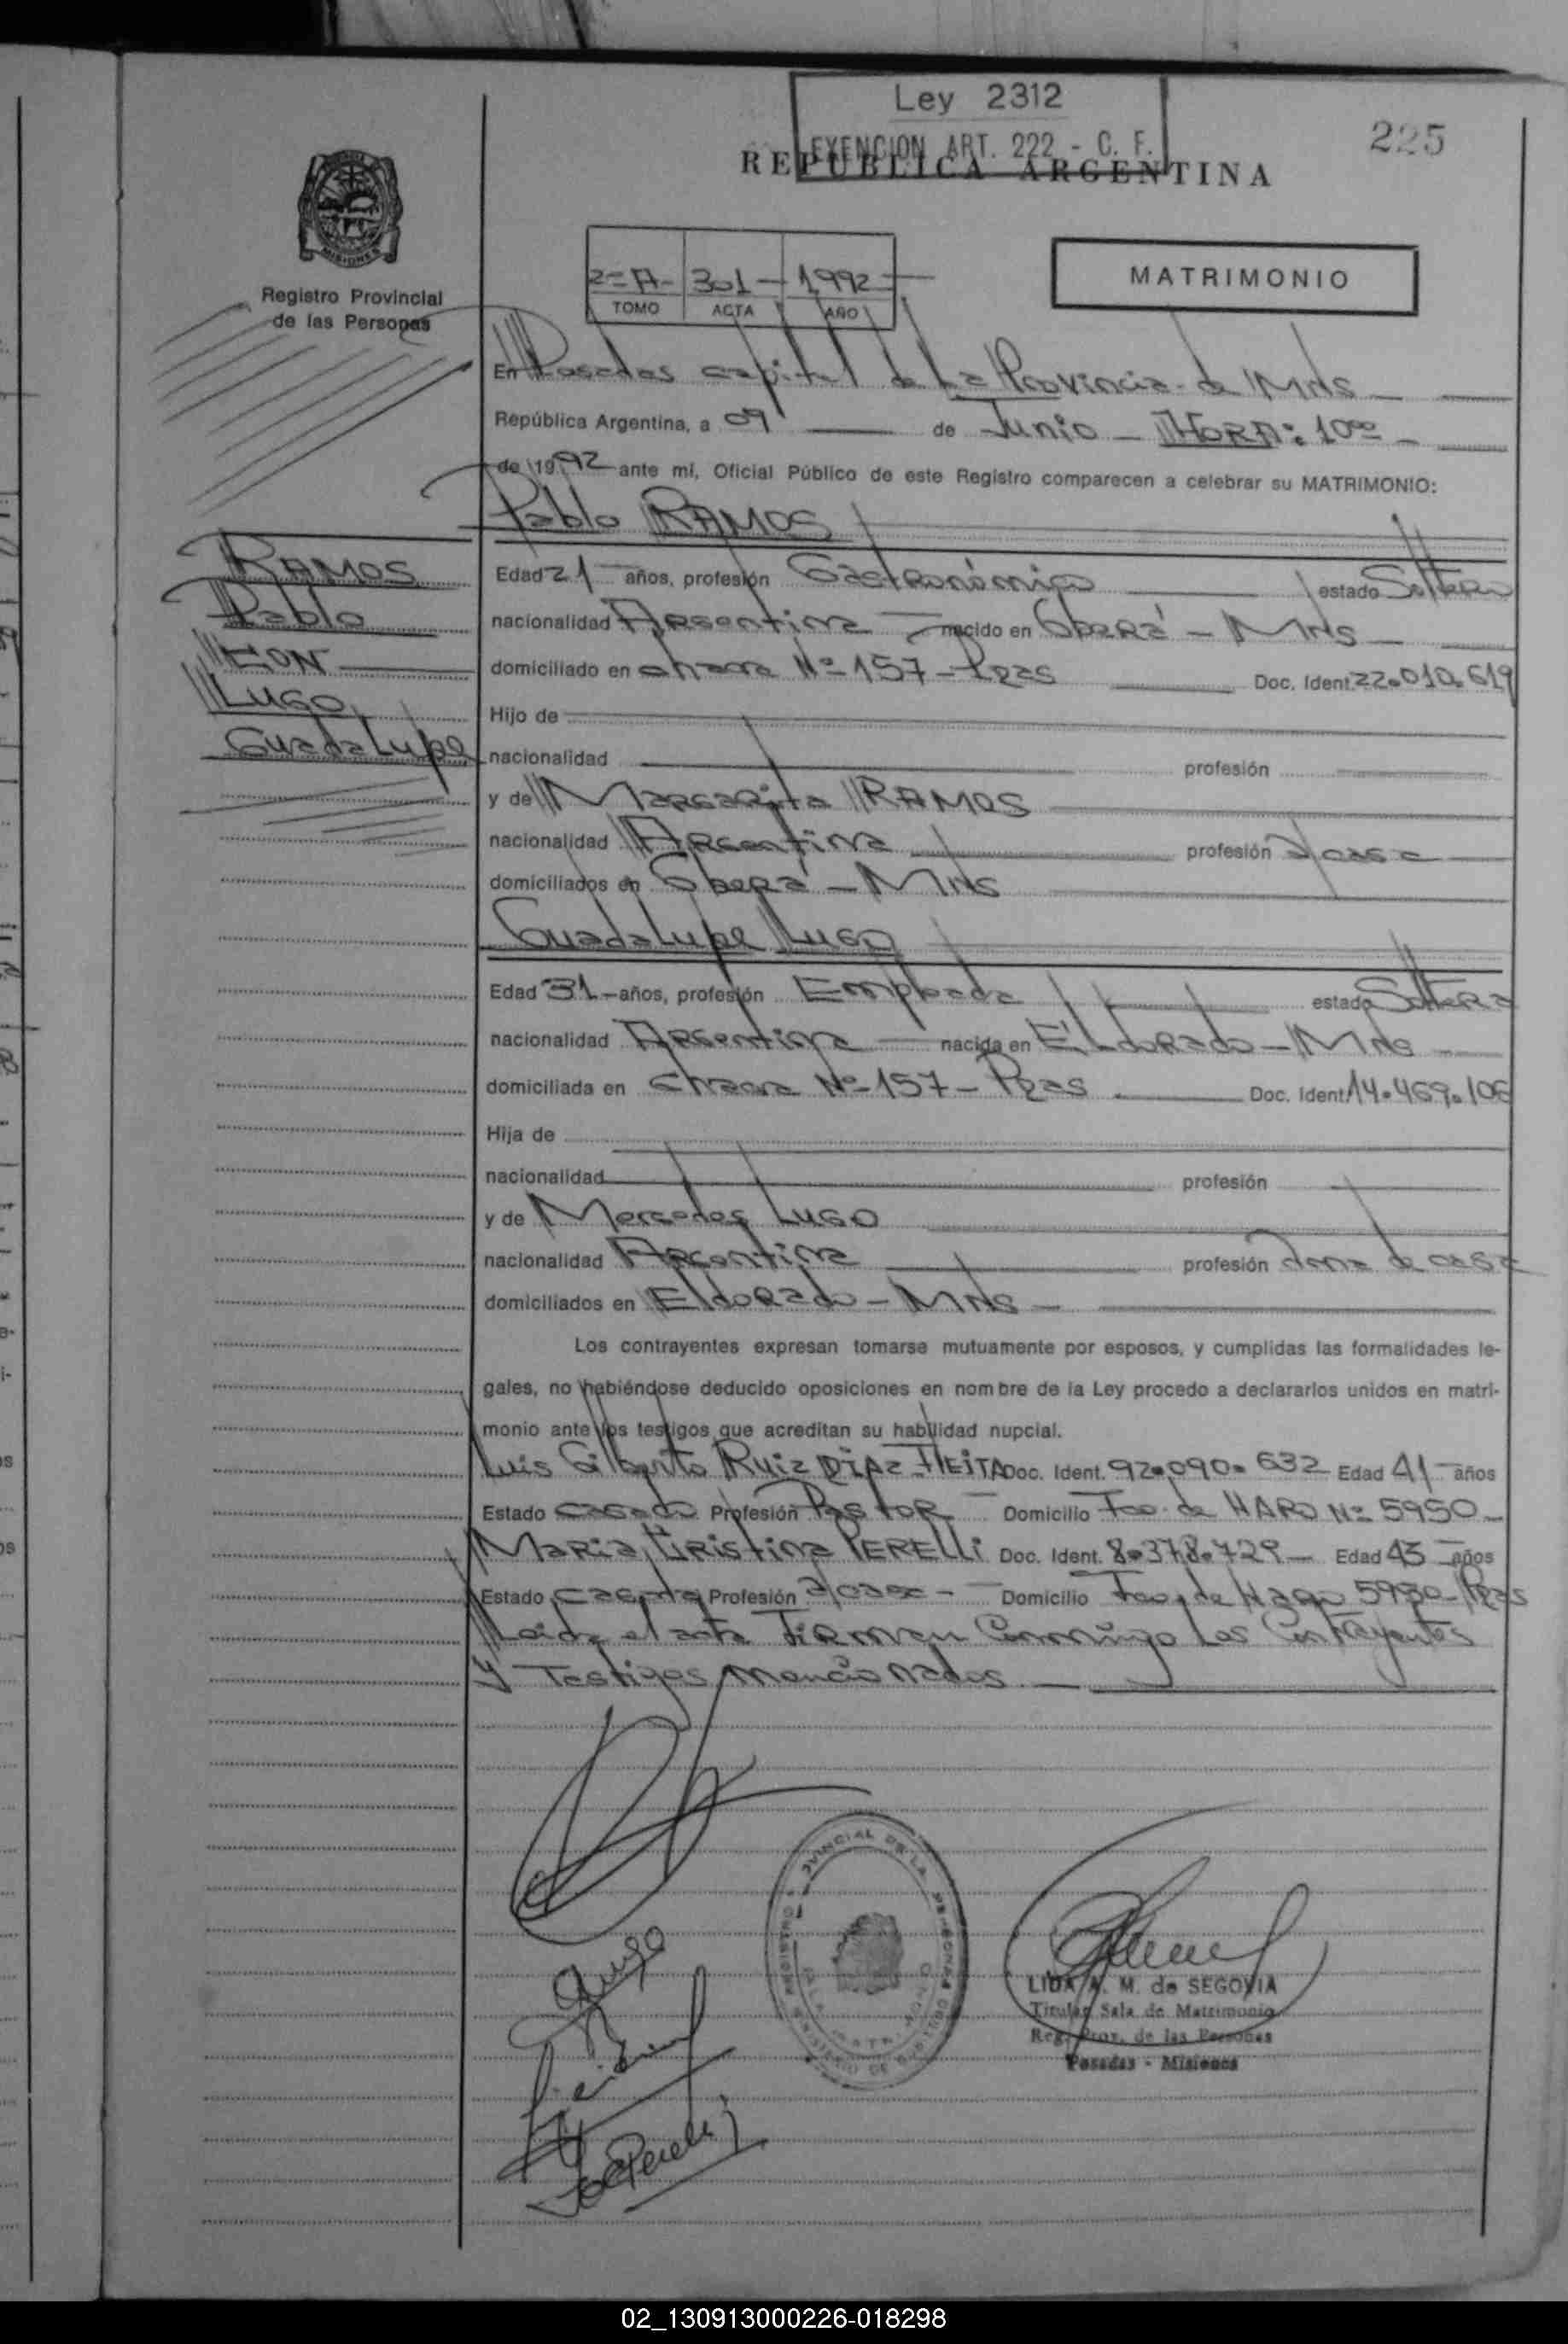 Ley 2312
EXENCION ART. 222 - C. F.
225
REPUBLICA ARGENTINA
MISIONES
Registro Provincial
de las Personas
2=A- 301- 1992
TOMO ACTA AÑO
MATRIMONIO
En Posadas capital de La Provincia de Mns
República Argentina, a 09 de Junio - HORA: 10oo -
de 1992 ante mí, Oficial Público de este Registro comparecen a celebrar su MATRIMONIO:
Pablo RAMOS
RAMOS
Pablo
CON
LUGO
Guadalupe
Edad 21 años, profesión Gastronómico estado Soltero
nacionalidad Argentina nacido en Oberá - Mns
domiciliado en chacra Nº 157 - Pzas Doc. Ident. 22.010.619
Hijo de
nacionalidad profesión
y de Margarita RAMOS
nacionalidad Argentina profesión
domiciliados en Oberá - Mns
Guadalupe Lugo
Edad 31 - años, profesión Empleada estado Soltera
nacionalidad Argentina nacida en Eldorado - Mns
domiciliada en Chacra Nº 157 - Pzas Doc. Ident. 14.469.106
Hija de
nacionalidad profesión
y de Mercedes LUGO
nacionalidad Argentina profesión ama de casa
domiciliados en Eldorado - Mns -
Los contrayentes expresan tomarse mutuamente por esposos, y cumplidas las formalidades le-
gales, no habiéndose deducido oposiciones en nombre de la Ley procedo a declararlos unidos en matri-
monio ante los testigos que acreditan su habilidad nupcial.
Luis Gilberto Ruiz DIAZ FLEITA Doc. Ident. 92.090.632 Edad 41 - años
Estado casado Profesión Pastor Domicilio Fco. de HARO Nº 5950 -
Maria Cristina PERELLI Doc. Ident. 8.378.729 - Edad 43 años
Estado casada Profesión Domicilio Fco. de Haro 5950 - Pzas
Leida el acta Firman Conmigo Los Contrayentes
y Testigos Mencionados
Lugo
LIDA A. M. de SEGOVIA
Titular Sala de Matrimonio
Reg. Prov. de las Personas
Posadas - Misiones
02_130913000226-018298